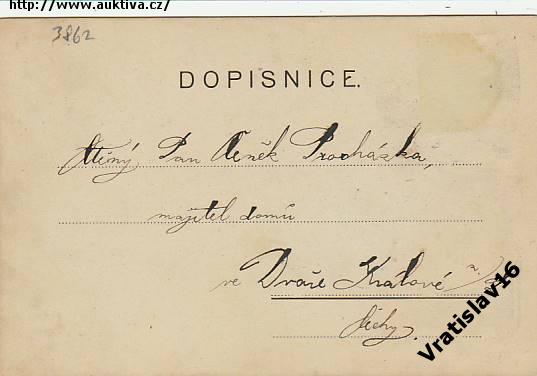 http://www.auktiva.cz/
3862
DOPISNICE.
Ctěný Pan Čeněk Procházka,
majitel domů
ve Dvoře Králové n./L.
Čechy.
Vratislav16